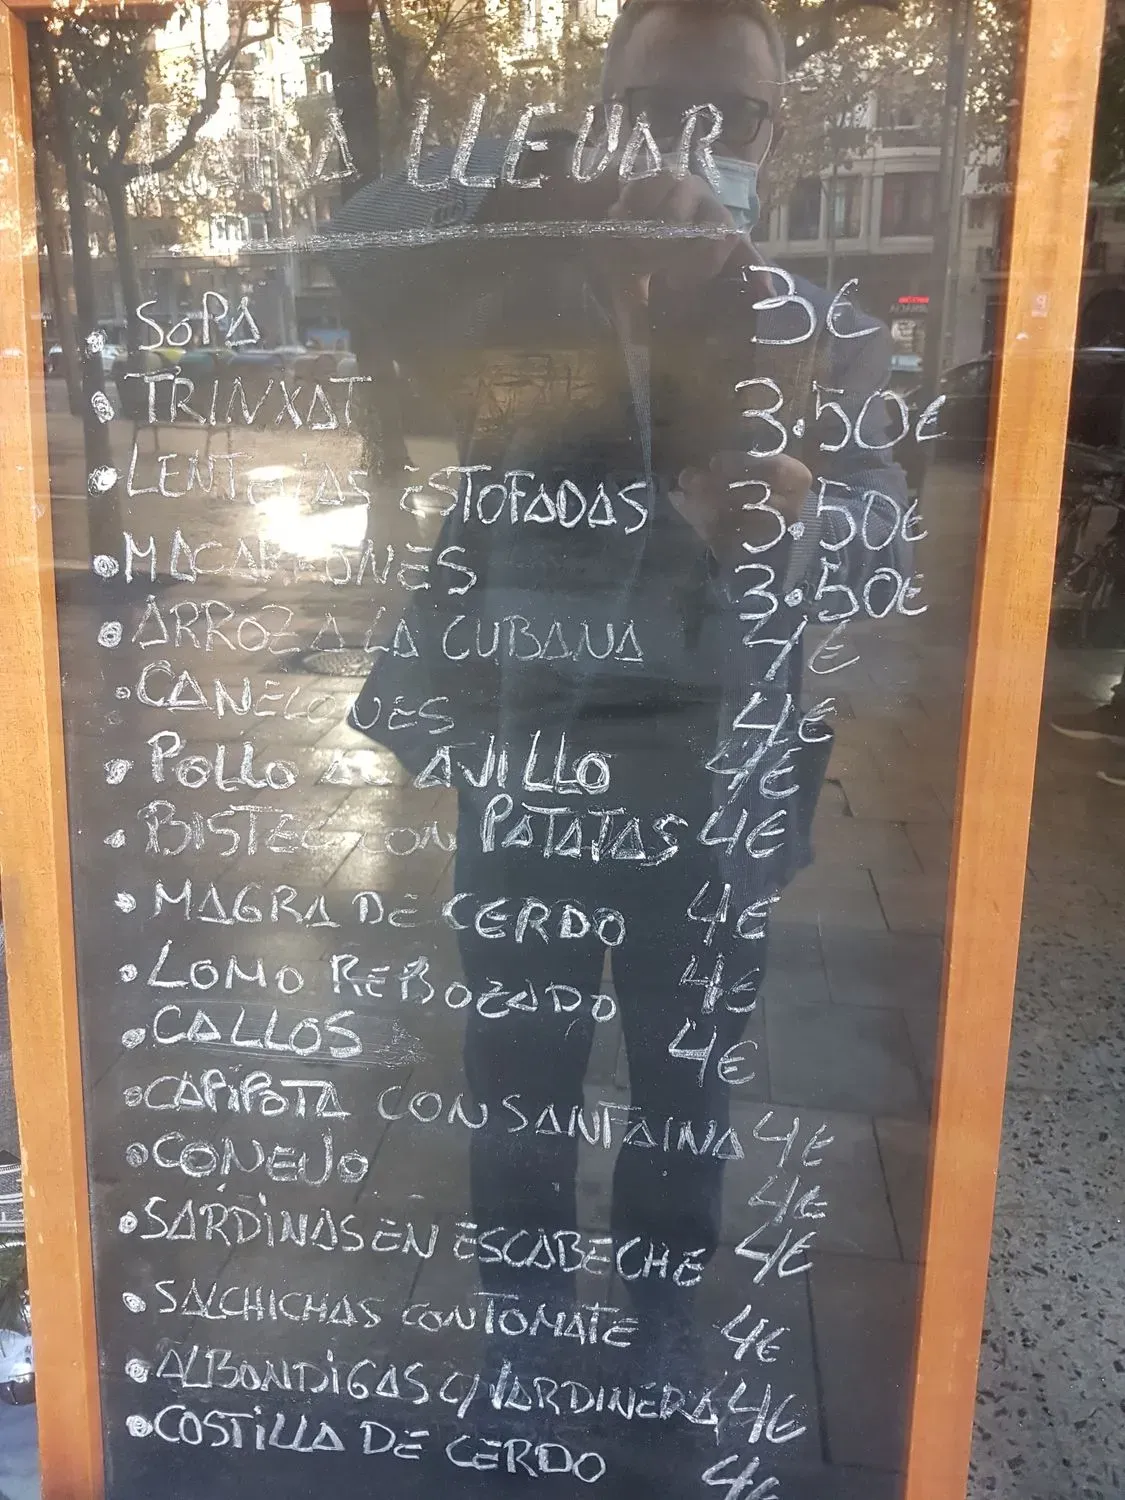 PARA LLEVAR
• SOPA 3€
• TRINXAT 3.50€
• LENTEJAS ESTOFADAS 3.50€
• MACARRONES 3.50€
• ARROZ A LA CUBANA 4€
• CANELONES 4€
• POLLO AL AJILLO 4€
• BISTEC CON PATATAS 4€
• MAGRA DE CERDO 4€
• LOMO REBOZADO 4€
• CALLOS 4€
• CAPIPOTA CON SANFAINA 4€
• CONEJO 4€
• SARDINAS EN ESCABECHE 4€
• SALCHICHAS CON TOMATE 4€
• ALBONDIGAS C/ JARDINERA 4€
• COSTILLA DE CERDO 4€